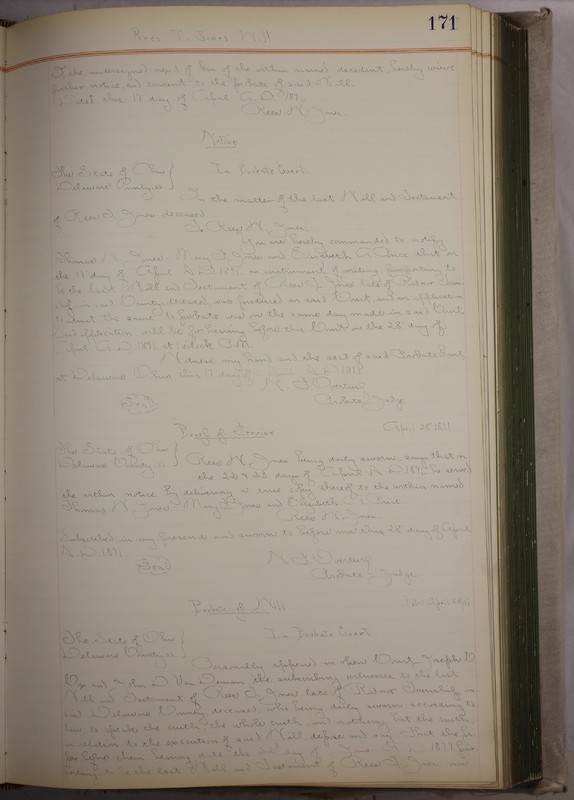 171
Rees T. Jones Will
I the undersigned next of kin of the within named decedent, hereby waive
further notice and consent to the probate of said Will.
Dated this 17 day of April A. D. 1891.
Rees W. Jones
Notice
The State of Ohio }
Delaware County, ss }
In Probate Court.
In the matter of the last Will and Testament
of Rees T. Jones deceased
To Rees W. Jones.
You are hereby commanded to notify
Thomas W. Jones, Mary J. Jones and Elizabeth A. Price that on
the 17 day of April A. D. 1891, an instrument of writing, purporting to
be the last Will and Testament of Rees T. Jones late of Radnor Town
ship in said County deceased, was produced in said Court, and an application
to admit the same to probate was on the same day made in said Court.
Said application will be for hearing before this Court on the 28 day of
April A. D. 1891, at o'clock P.M.
Witness my hand and the seal of said Probate Court
at Delaware Ohio this 17 day of April A. D. 1891
N. F. Overturf
Probate Judge
Seal
April 28 1891.
Proof of Service
The State of Ohio }
Delaware County ss }
Rees W. Jones being duly sworn, says that on
the 22 & 23 days of April A. D. 1891, he served
the within notice by delivering a true copy thereof to the within named
Thomas W. Jones, Mary J. Jones and Elizabeth A. Price
Rees W. Jones
Subscribed in my presence and sworn to before me this 28 day of April
A. D. 1891.
Seal
N. F. Overturf
Probate Judge
April 28
Probate of Will
The State of Ohio }
Delaware County ss }
In Probate Court
Personally appeared in open Court, Joseph
and John D. Van Deman the subscribing witnesses to the last
Will and Testament of Rees T. Jones late of Radnor Township in
said Delaware County deceased, who being duly sworn according to
law to speak the truth, the whole truth and nothing but the truth,
in relation to the execution of said Will, depose and say, that the
before them bearing date the day of June A. D. 1877
to be the last Will and Testament of Rees T. Jones